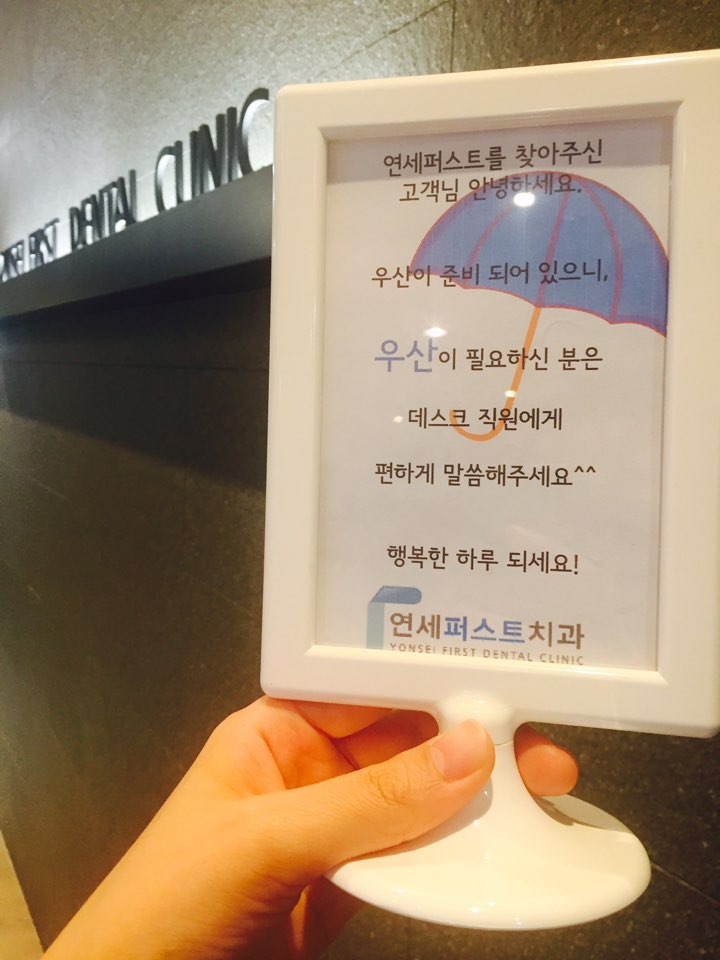 YONSEI FIRST DENTAL CLINIC
연세퍼스트를 찾아주신
고객님 안녕하세요.
우산이 준비 되어 있으니,
우산이 필요하신 분은
데스크 직원에게
편하게 말씀해주세요^^
행복한 하루 되세요!
연세퍼스트치과
YONSEI FIRST DENTAL CLINIC